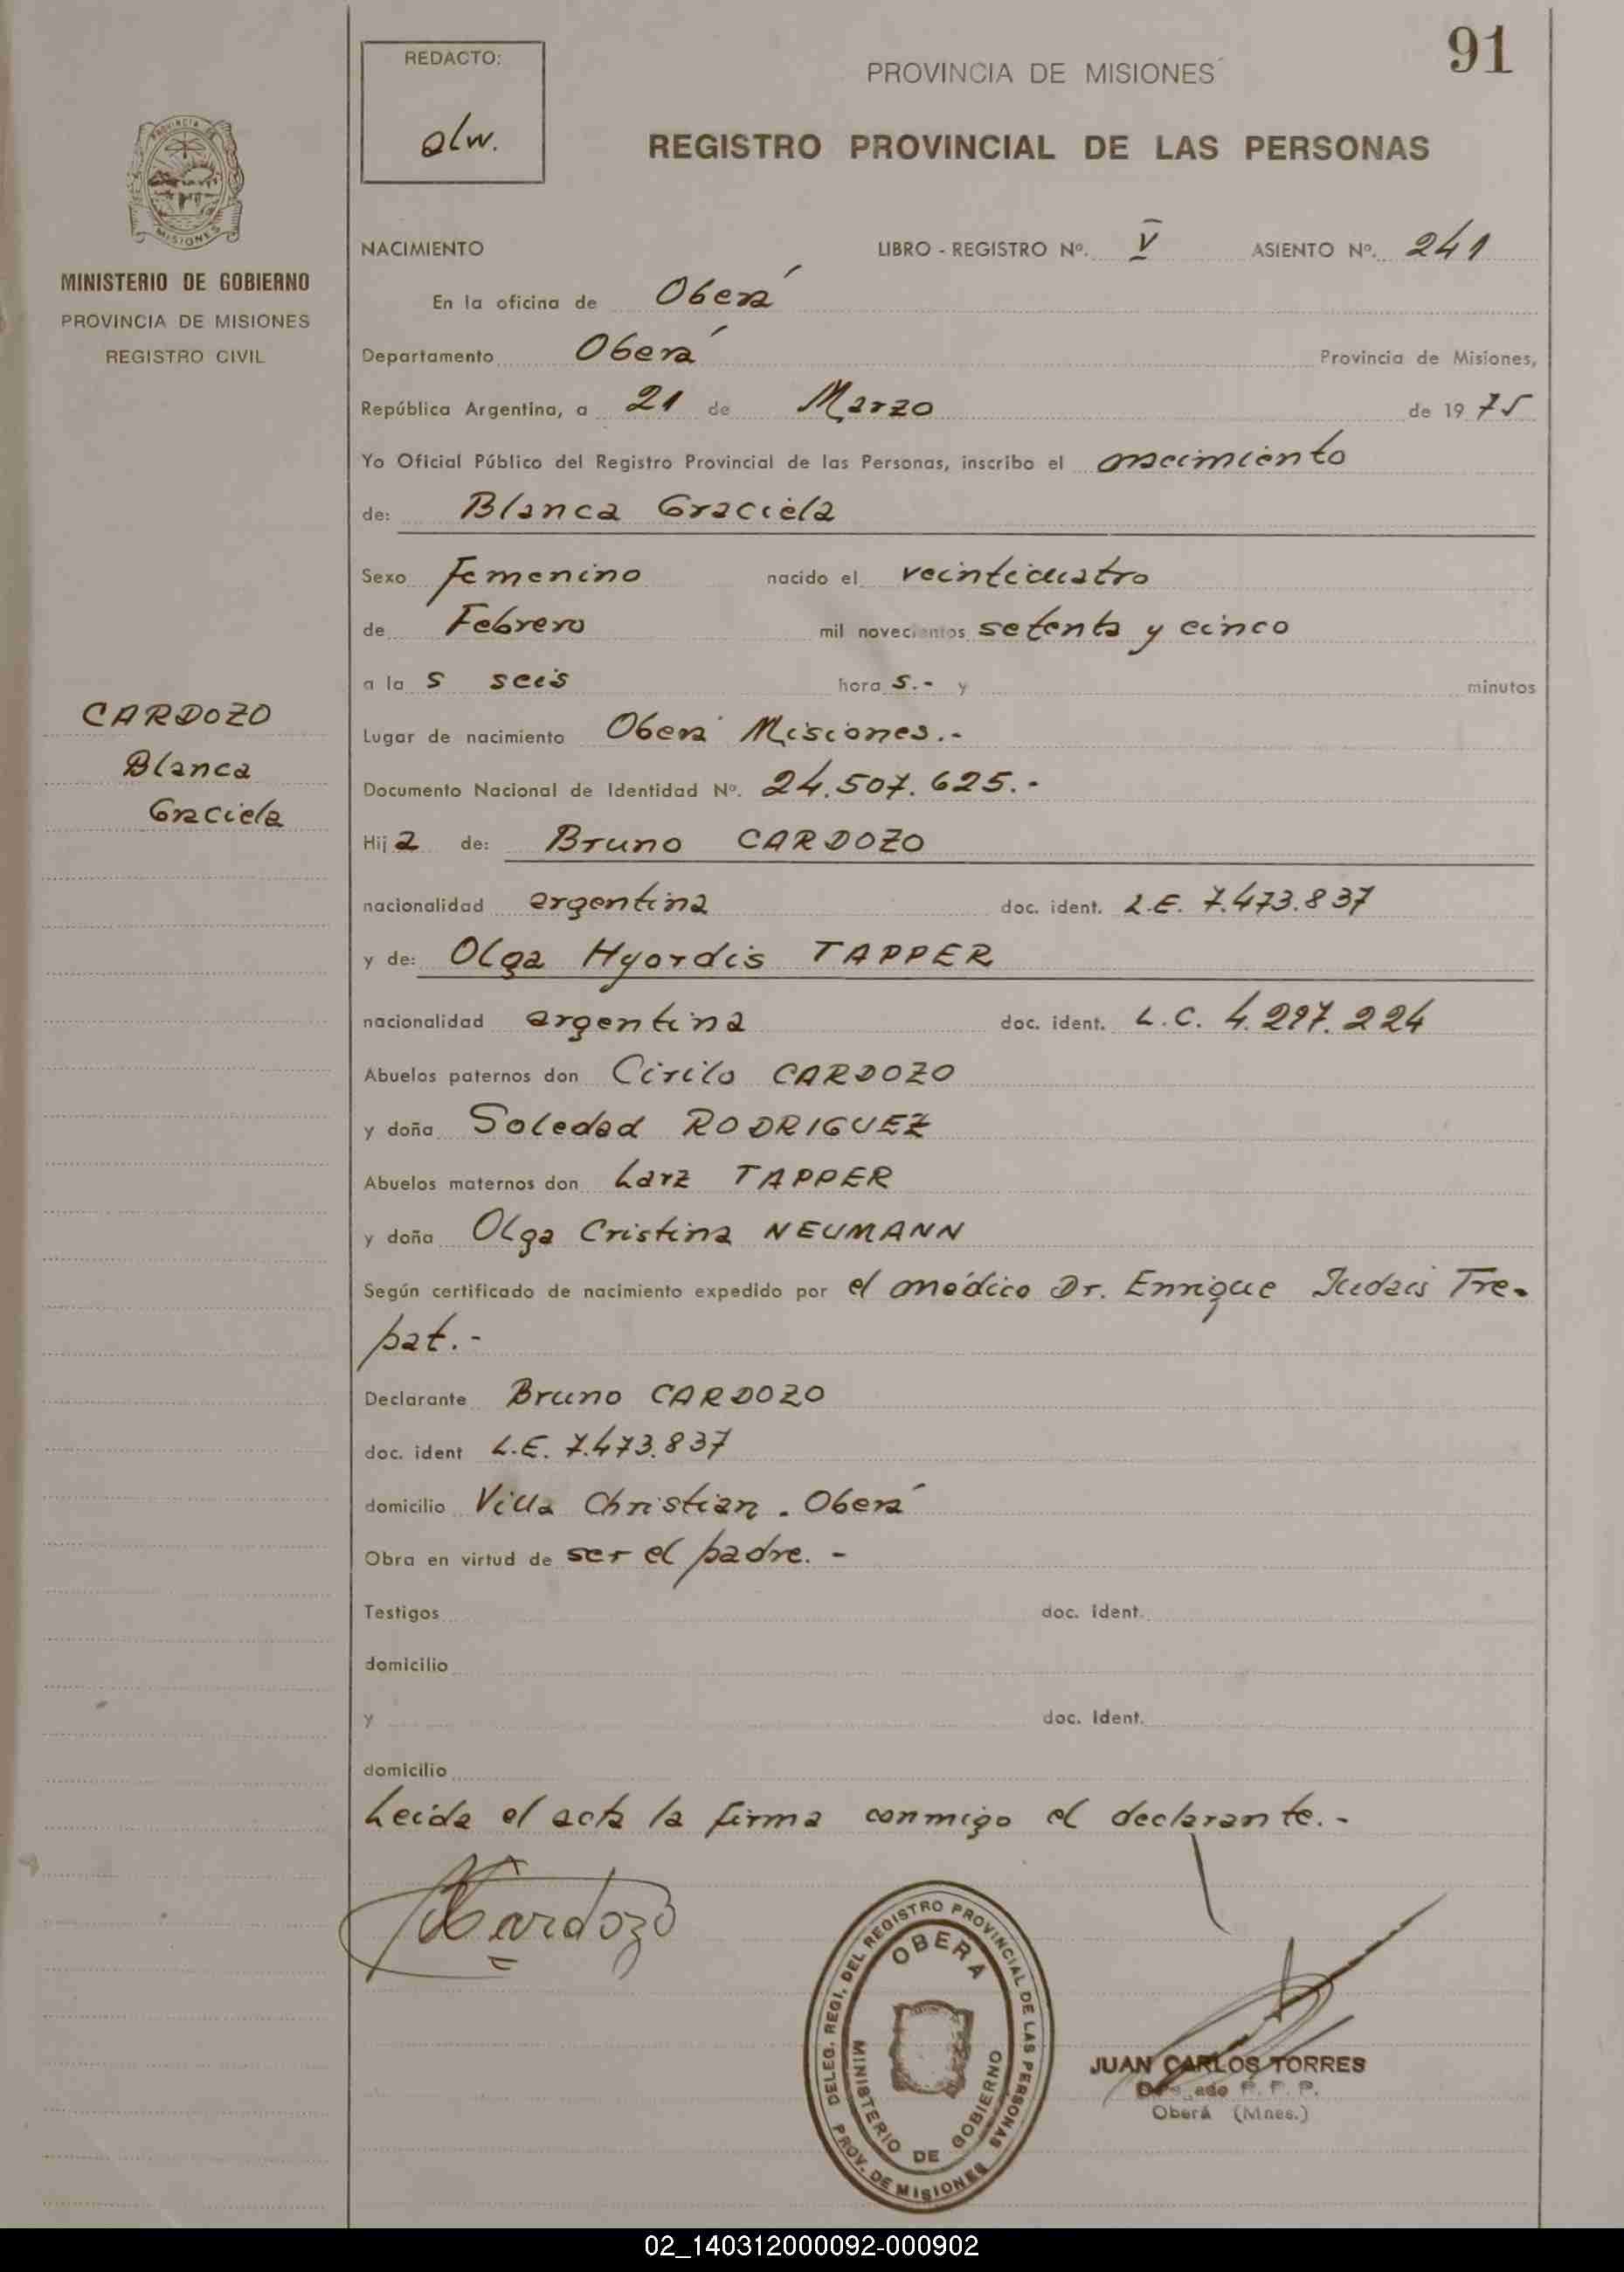 91
REDACTO:
alw.
PROVINCIA DE MISIONES
REGISTRO PROVINCIAL DE LAS PERSONAS
PROVINCIA DE
MISIONES
MINISTERIO DE GOBIERNO
PROVINCIA DE MISIONES
REGISTRO CIVIL
NACIMIENTO LIBRO - REGISTRO Nº. V ASIENTO Nº. 241
En la oficina de Oberá
Departamento Oberá Provincia de Misiones,
República Argentina, a 21 de Marzo de 1975
Yo Oficial Público del Registro Provincial de las Personas, inscribo el nacimiento
de: Blanca Graciela
Sexo femenino nacido el veinticuatro
de Febrero mil novecientos setenta y cinco
a la s seis hora s.- y minutos
CARDOZO
Blanca
Graciela
Lugar de nacimiento Oberá Misiones.-
Documento Nacional de Identidad Nº. 24.507.625.-
Hija de: Bruno CARDOZO
nacionalidad argentina doc. ident. L.E. 7.473.837
y de: Olga Hyordis TAPPER
nacionalidad argentina doc. ident. L.C. 4.297.224
Abuelos paternos don Cirilo CARDOZO
y doña Soledad RODRIGUEZ
Abuelos maternos don Larz TAPPER
y doña Olga Cristina NEUMANN
Según certificado de nacimiento expedido por el médico Dr. Enrique Judais Tre-
pat.-
Declarante Bruno CARDOZO
doc. ident L.E. 7.473.837
domicilio Villa Christian - Oberá
Obra en virtud de ser el padre. -
Testigos doc. ident.
domicilio
y doc. ident.
domicilio
Leída el acta la firma conmigo el declarante.-
Cardozo
DELEG. REGI. DEL REGISTRO PROVINCIAL DE LAS PERSONAS
OBERA
MINISTERIO DE GOBIERNO
PROV. DE MISIONES
JUAN CARLOS TORRES
Oberá (Mnes.)
02_140312000092-000902